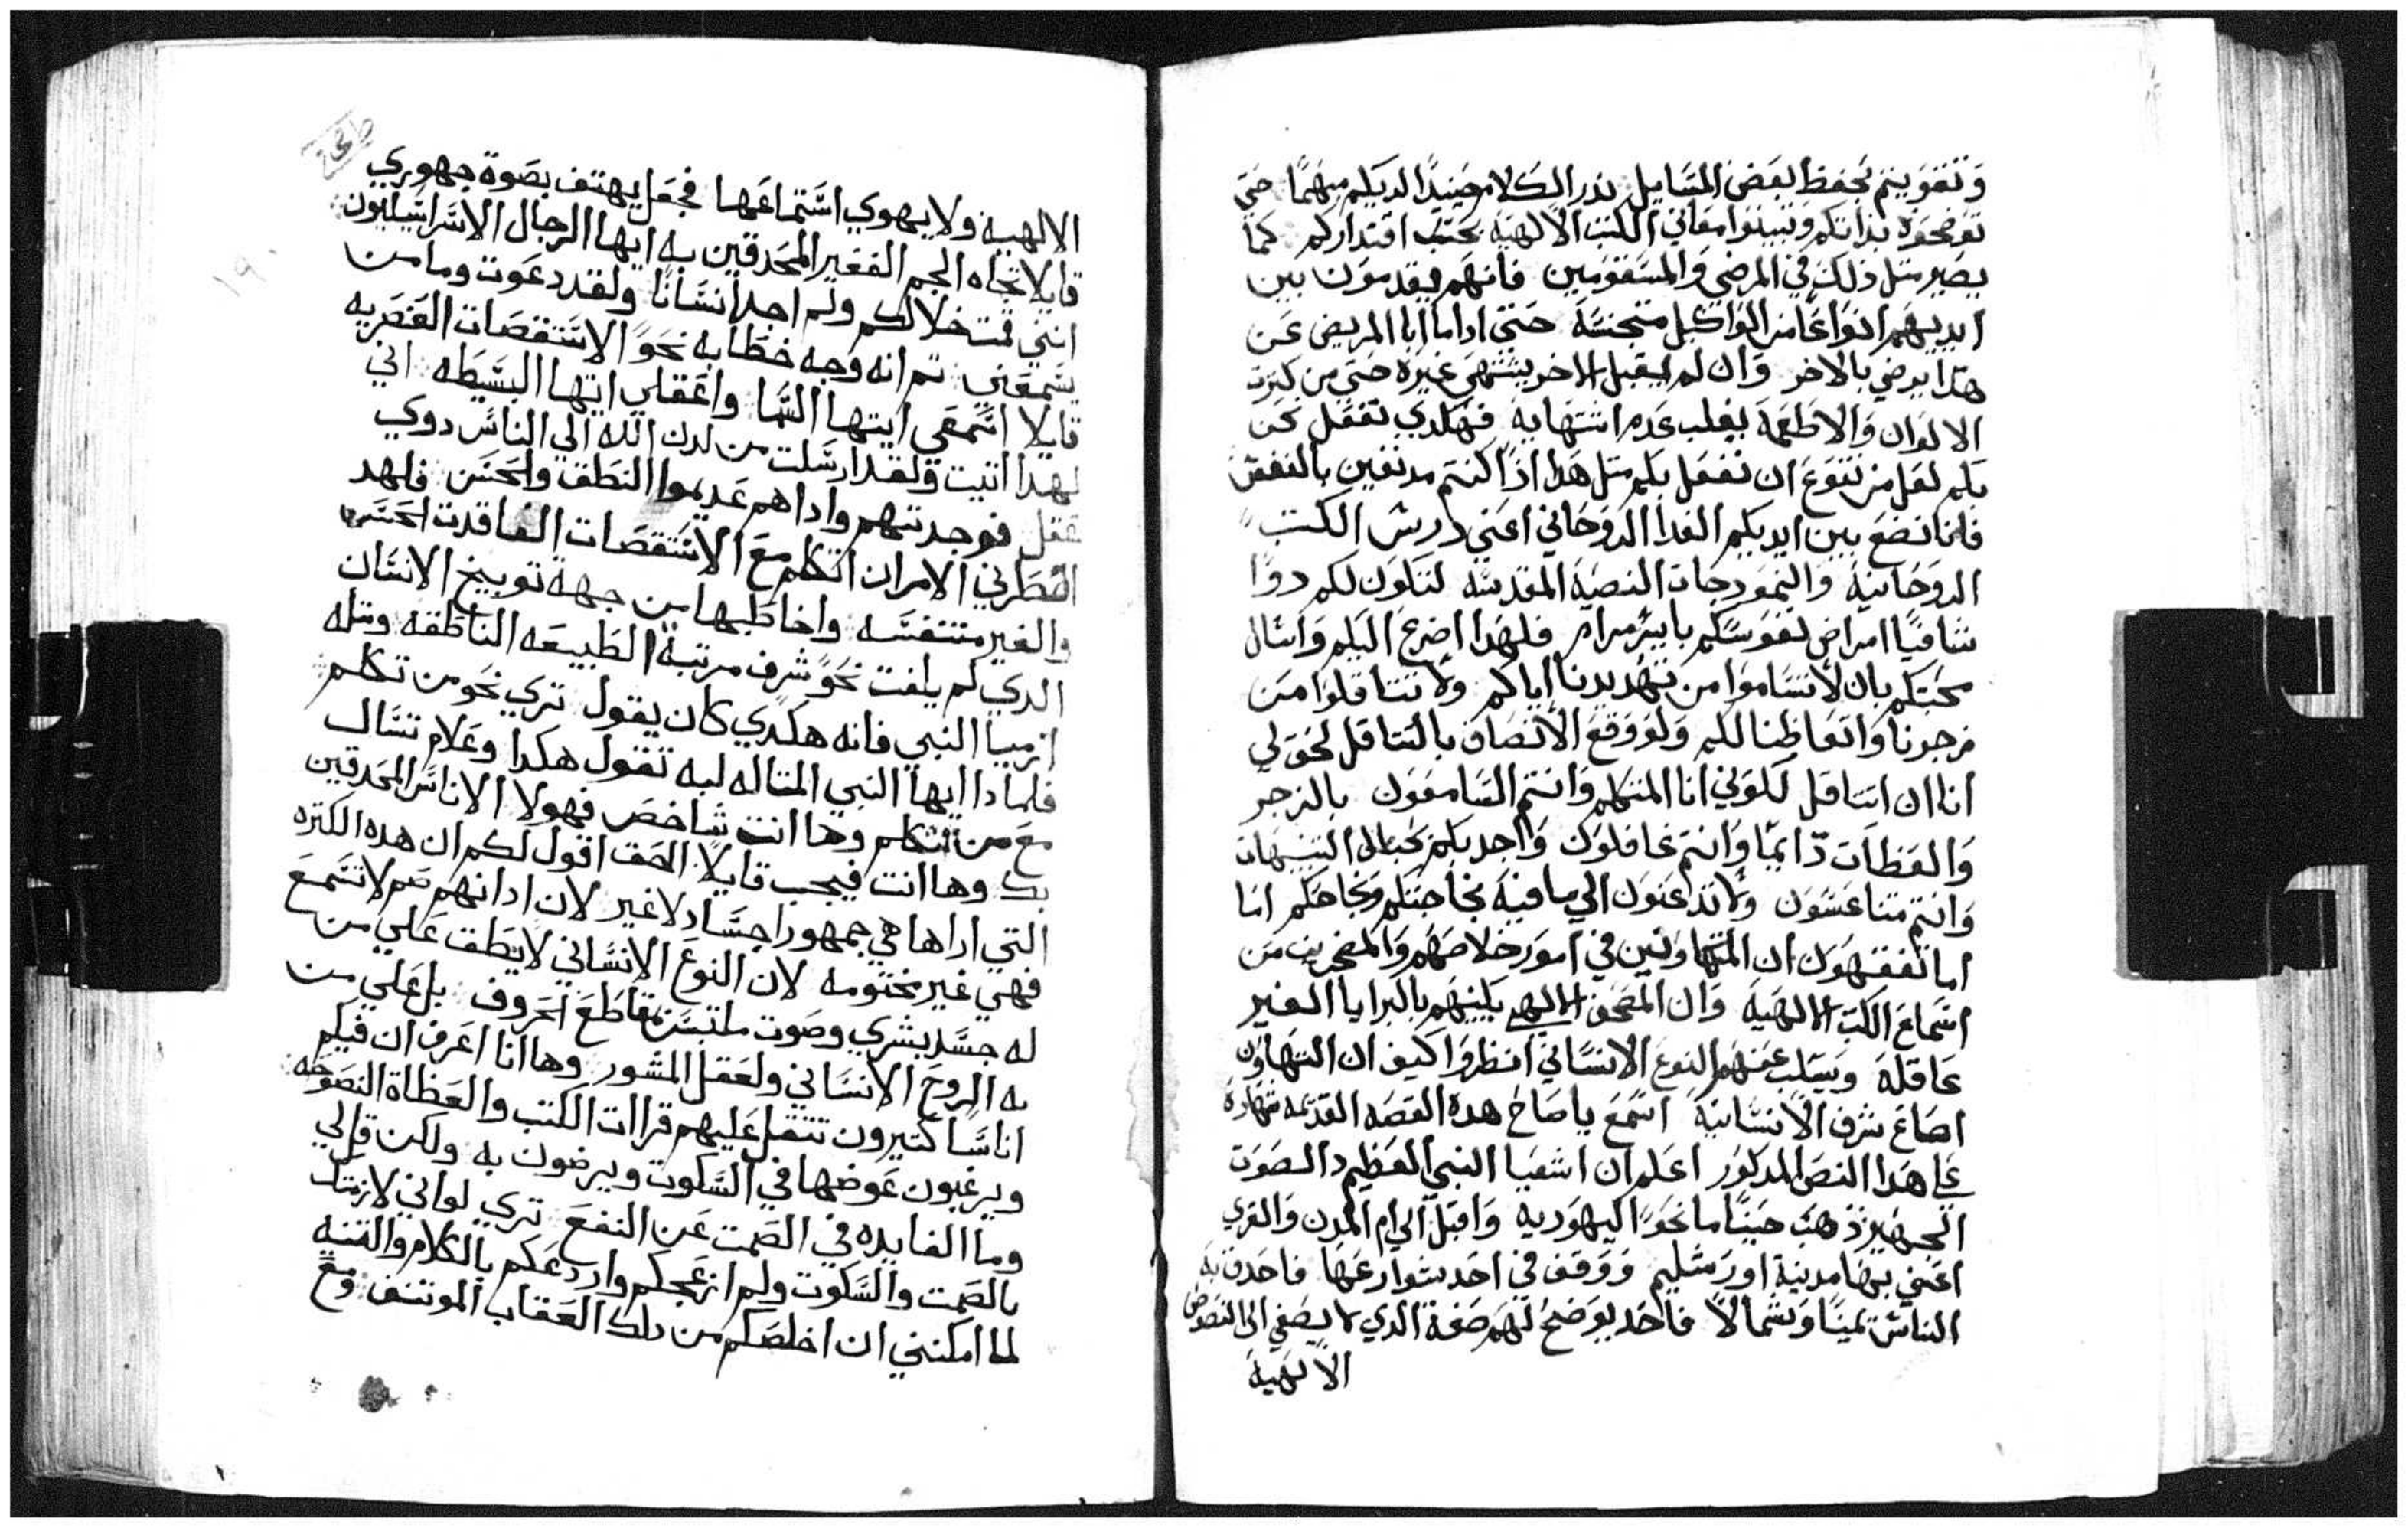 وتفويتم بحفظ بعض المسايل نذر الكلام حينيدا لديكم مبهما حتي
توضحوه بذاتكم وتبينوا معاني الكتب الالهية بحسب اقتداركم كما
يصير مثل ذلك في المرضي والمسقومين فانهم يقدمون بين
ايديهم انواعا من الواكيل متجنسة حتي اداما ابا المريض عن
هدا يرضي بالاخر وان لم يقبل الاخر يشتهي غيره حتي من كترت
الالوان والاطعمة يغلب عدم اشتهايه فهكدي نفعل نحن
بكم لعل من تنوع ان نفعل بكم متل هدا ادا كنتم مدنفين بالنفس
فلما نضع بين ايديكم الغدا الروحاني اعني درس الكتب
الروحانية والنمودجات النصية المقدسه لتكون لكم دوا
شافيا امراض نفوسكم بايسر مرام فلهدا اضرع اليكم واسال
محبتكم بان لا تساموا من تهديدنا اياكم ولا تتتاقلوا من
زجرنا واتعاظنا لكم ولو وقع الانصاف بالتتاقل لحق لي
انا ان اتتاقل لكوني انا المتكلم وانتم السامعون بالزجر
والعظات دايما وانتم غافلون واجد بكم بحبال التنبيهات
وانتم متناعسون ولا تدعنون الي ما فيه نجاحتكم ونجاحكم اما
اما تفقهون ان المتهاونين في امور خلاصهم والمضجرين من
استماع الكتب الالهية وان المصحف الالهي يكنيهم بالبرايا الغير
عاقلة ويسلب عنهم النوع الانساني انظروا كيف ان التهاون
اضاع شرف الانسانية اسمع يا صاح هده القصه القديمه شهادة
علي هدا النص المدكور اعلم ان اشعيا النبي العظيم دا الصوت
الجهير ذهب حينا ما نحو اليهوديه واقبل الي ام المدن والقري
اعني بها مدينة اورشليم ووقف في احد شوارعها فاحدق به
الناس يمينا وشمالا فاخد يوضح لهم صفة الدي لا يصغي الي النصوص
الالهية
الالهيه ولا يهوي استماعها فجعل يهتف بصوة جهوري
قايلا تجاه الجم الغفير المحدقين به ايها الرجال الاسراييليون
انني قمت خلالكم ولم اجد انسانا ولقد دعوت وما من
يسمعني تم انه وجه خطابه نحو الاستقصات العنصريه
قايلا اسمعي ايتها السما واعقلي ايتها البسيطه اني
لهدا اتيت ولقد ارسلت من لدن الله الي الناس دوي
عقل فوجدتهم واداهم عديموا النطق والحس فلهد
اضطرني الامر ان اتكلم مع الاستقصات الفاقدت الحس
والغير متنفسه واخاطبها من جهة توبيخ الانسان
الدي لم يلفت نحو شرف مرتبة الطبيعه الناطقه ومتله
ارميا النبي فانه هكدي كان يقول تري نحو من تكلم
فلمادا ايها النبي المتاله لبه تقول هكدا وعلام تسال
مع من اتكلم وها انت شاخص فهولا الاناس المحدقين
بك وها انت فيجب قايلا الحق اقول لكم ان هده الكتره
التي اراها هي جمهور اجساد لا غير لان ادانهم صم لا تسمع
فهي غير مختومه لان النوع الانساني لا يطق علي من
له جسد بشري وصوت ملتبس بمقاطع الحروف بل علي من
به الروح الانساني ولعقل المشور وها انا اعرف ان فيكم
اناسا كتيرون تتقل عليهم قراات الكتب والعظاة النصوحه
ويرغبون عوضها في السكوت ويرضون به ولكن قل لي
وما الفايده في الصمت عن النفع تري لو انني لازمتك
بالصمت والسكوت ولم ازعجكم واردعكم بالكلام والتنبه
لما امكنني ان اخلصكم من دلك العقاب الموتنف ومع